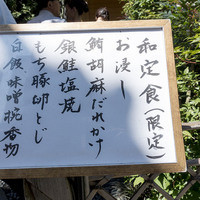 和定食(限定)
お浸し
鮪胡麻だれかけ
銀鮭塩焼
もち豚卵とじ
白飯味噌椀香物